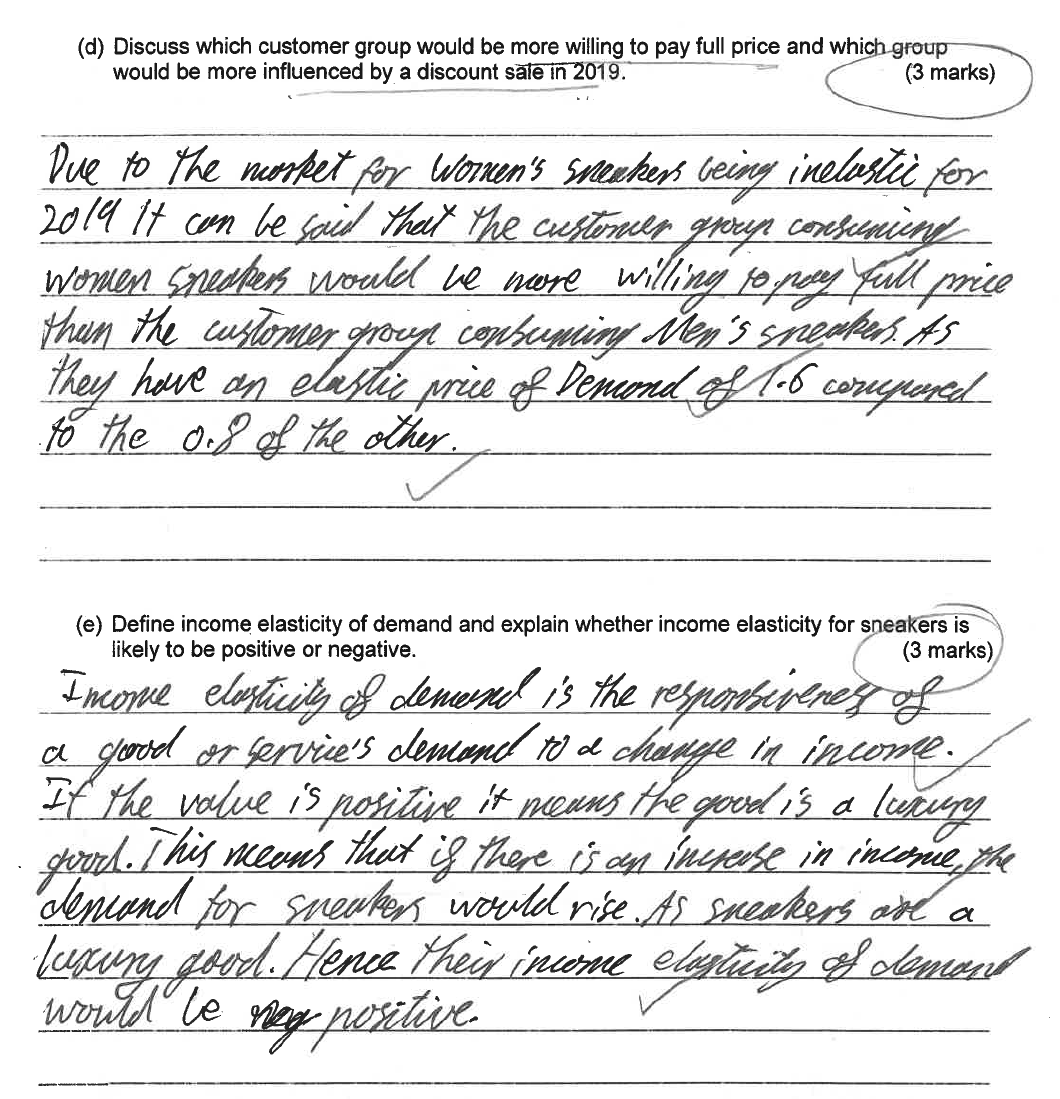 (d) Discuss which customer group would be more willing to pay full price and which group
would be more influenced by a discount sale in 2019. (3 marks)
Due to the market for Women's sneakers being inelastic for
2019 It can be said that the customer group consuming
women sneakers would be more willing to pay full price
than the customer group consuming Men's sneakers. As
they have an elastic price of Demand of 1.6 compared
to the 0.8 of the other.
(e) Define income elasticity of demand and explain whether income elasticity for sneakers is
likely to be positive or negative. (3 marks)
Income elasticity of demand is the responsiveness of
a good or service's demand to a change in income.
If the value is positive it means the good is a luxury
good. This means that if there is an increase in income, the
demand for sneakers would rise. As sneakers are a
luxury good. Hence their income elasticity of demand
would be neg positive.